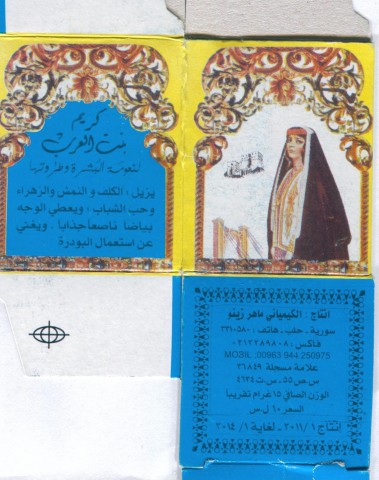 كريم
بنت العرب
لنعومة البشرة وطراوتها
يزيل : الكلف و النمش والزهراء
وحب الشباب ، ويعطي الوجه
بياضاً ناصعاً جذابا . ويغني
عن استعمال البودرة
انتاج : الكيميائي ماهر زينو
سورية . حلب . هاتف : ٣٣٦٠٥٨٠
فاكس : ٠٢١٢٢٨٩٨٠٨
MOBIL :00963 944 250975
علامة مسجلة ٣٦٨٤٩
س ص ٥٥ . س . ت ٤٦٣٤
الوزن الصافي ١٥ غرام تقريباً
السعر ٦٠ ل س
انتاج ٢٠١١/١ . لغاية ٢٠١٤/١